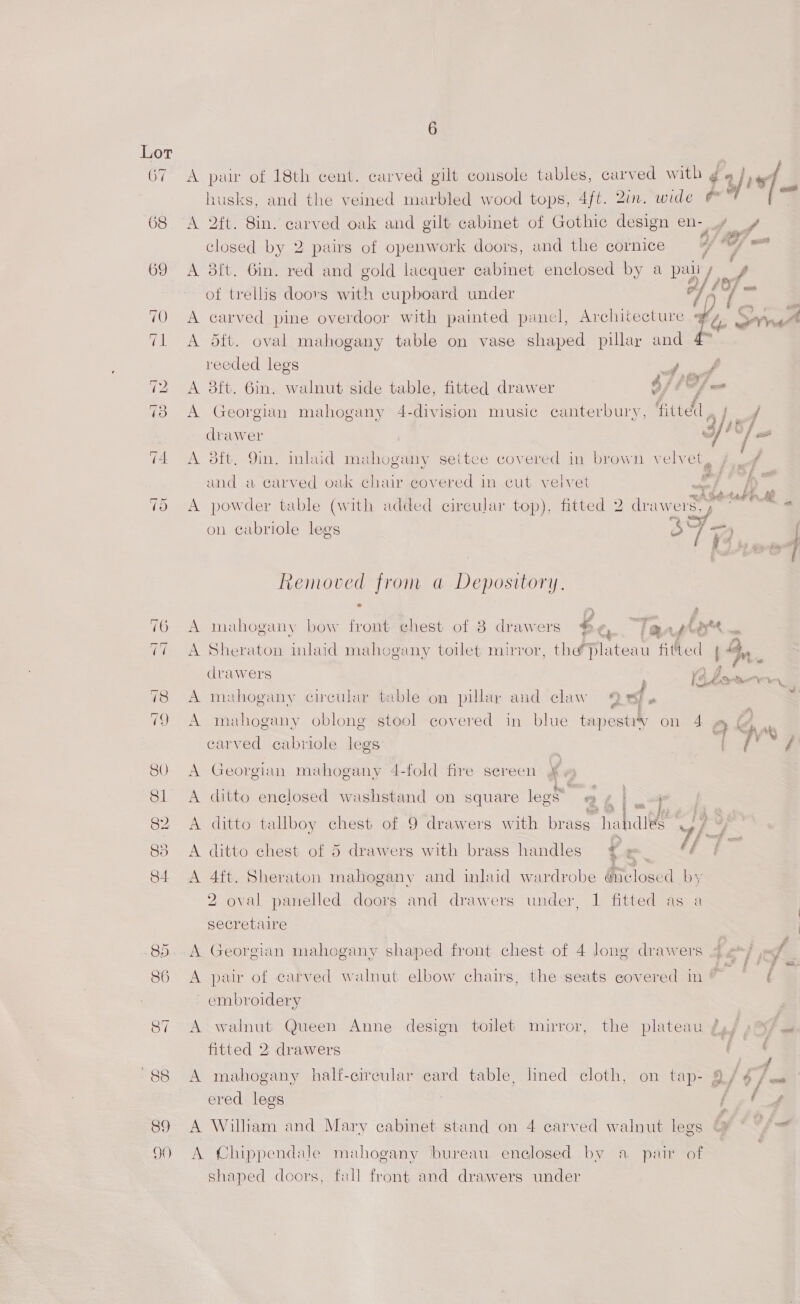 6
Lot
67 A pair of 18th cent. carved gilt console tables, carved with
husks, and the veined marbled wood tops, 4ft. 2in. wide
68 A 2ft. 8in. carved oak and gilt cabinet of Gothic design en-
closed by 2 pairs of openwork doors, and the cornice
69 A 3ft. 6in. red and gold lacquer cabinet enclosed by a pair
of trellis doors with cupboard under
70 A carved pine overdoor with painted panel, Architecture
71 A 5ft. oval mahogany table on vase shaped pillar and
reeded legs
72 A 3ft. 6in. walnut side table, fitted drawer
73 A Georgian mahogany 4-division music canterbury, fitted
drawer
74 A 3ft. 9in. inlaid mahogany settee covered in brown velvet
and a carved oak chair covered in cut velvet
75 A powder table (with added circular top), fitted 2 drawers,
on cabriole legs
Removed from a Depository.
76 A mahogany bow front chest of 3 drawers
77 A Sheraton inlaid mahogany toilet mirror, the plateau fitted
drawers
78 A mahogany circular table on pillar and claw
79 A mahogany oblong stool covered in blue tapestry on 4
carved cabriole legs
80 A Georgian mahogany 4-fold fire screen
81 A ditto enclosed washstand on square legs
82 A ditto tallboy chest of 9 drawers with brass handles
83 A ditto chest of 5 drawers with brass handles
84 A 4ft. Sheraton mahogany and inlaid wardrobe enclosed by
2 oval panelled doors and drawers under, 1 fitted as a
secretaire
85 A Georgian mahogany shaped front chest of 4 long drawers
86 A pair of carved walnut elbow chairs, the seats covered in
embroidery
87 A walnut Queen Anne design toilet mirror, the plateau
fitted 2 drawers
88 A mahogany half-circular card table, lined cloth, on tap-
ered legs
89 A William and Mary cabinet stand on 4 carved walnut legs
90 A Chippendale mahogany bureau enclosed by a pair of
shaped doors, fall front and drawers under